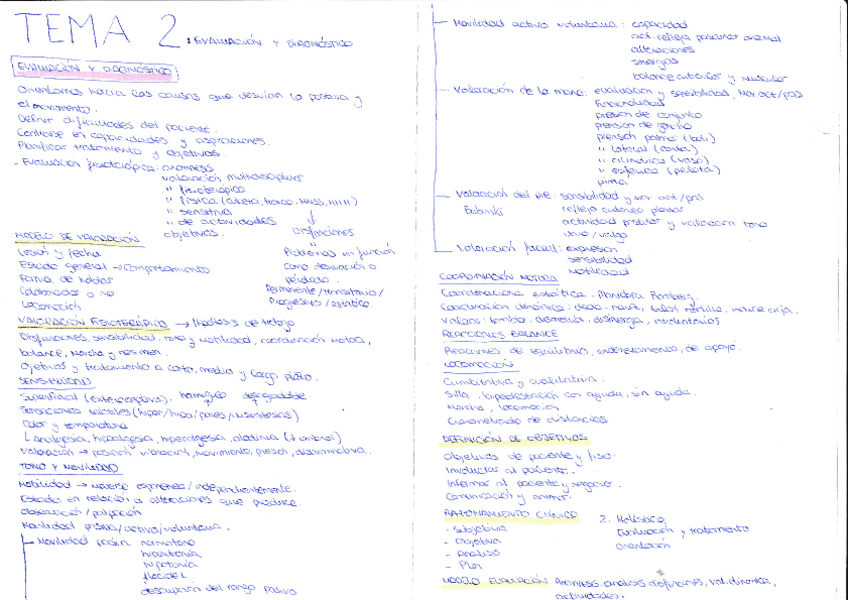 TEMA 2: EVALUACIÓN Y DIAGNÓSTICO
EVALUACIÓN Y DIAGNÓSTICO
Orientarnos hacia las causas que desvían la postura y
el movimiento.
Definir dificultades del paciente.
Centrarse en capacidades y aspiraciones.
Planificar tratamiento y objetivos.
- Evaluación fisioterápica: anamnesis
valoración multidisciplinar
" fisioterápica
" física
" sensitiva
" de actividades
objetivos.
Disfunciones
Problemas en función
como desviación o
pérdida.
Permanente/transitoria/
Progresivo/estático.
MODELO DE VALORACIÓN
Lesión y fecha
Estado general → comportamiento
Forma de hablar
Colaborador o no
Locomoción
VALORACIÓN FISIOTERÁPICA → Hipótesis de trabajo
Disfunciones, sensibilidad, tono y motilidad, coordinación motora,
balance, marcha y
Objetivos y tratamiento a corto, medio y largo plazo.
SENSIBILIDAD
Superficial (exteroceptiva).
Sensaciones táctiles (hiper/hipo/
Dolor y temperatura
Analgesia, hipoalgesia, hiperalgesia, alodinia
Valoración → posición, vibración, movimiento, presión, discriminativa.
TONO Y MOVILIDAD
Motilidad → moverse espontánea/independientemente.
Estado en relación a alteraciones que produce.
Observación/palpación
Motilidad pasiva/activa/voluntaria.
- Movilidad pasiva: normotono
hipertonía
hipotonía
flacidez
descripción del rango pasivo
- Movilidad activa voluntaria: capacidad
act. refleja postural anormal
alteraciones
sinergias
balance articular y muscular
- Valoración de la mano: evaluación y sensibilidad. Mov act/pas
funcionalidad
presión de conjunto
prensión de gancho
prensión palmar
" lateral
" cilíndrica (vaso)
" esférica (pelota)
pinza
- Valoración del pie: sensibilidad y mov act/pas
Babinski
reflejo cutáneo plantar
actividad postural y valoración tono
varo/valgo
- Valoración facial: expresión
sensibilidad
motilidad
COORDINACIÓN MOTORA
Coordinación estática. Maniobra Romberg.
Coordinación dinámica: dedo-nariz, talón rodilla,
Valorar: temblor, dismetría, disinergia, movimientos
REACCIONES BALANCE
Reacciones de equilibrio, enderezamiento, de apoyo.
LOCOMOCIÓN
Cuantitativa y cualitativa.
Silla, bipedestación con ayuda, sin ayuda.
Marcha, locomoción
Cronometrado de distancias
DEFINICIÓN DE OBJETIVOS
Objetivos de paciente y fisio.
Involucrar al paciente.
Informar al paciente y negociar.
Comunicación y animar.
RAZONAMIENTO CLÍNICO
- Subjetiva
- Objetiva
- Análisis
- Plan
2. Holístico
Evaluación y tratamiento
orientación
MODELO EVALUACIÓN Anamnesis, análisis disfunciones, val. dinámica,
actividades.